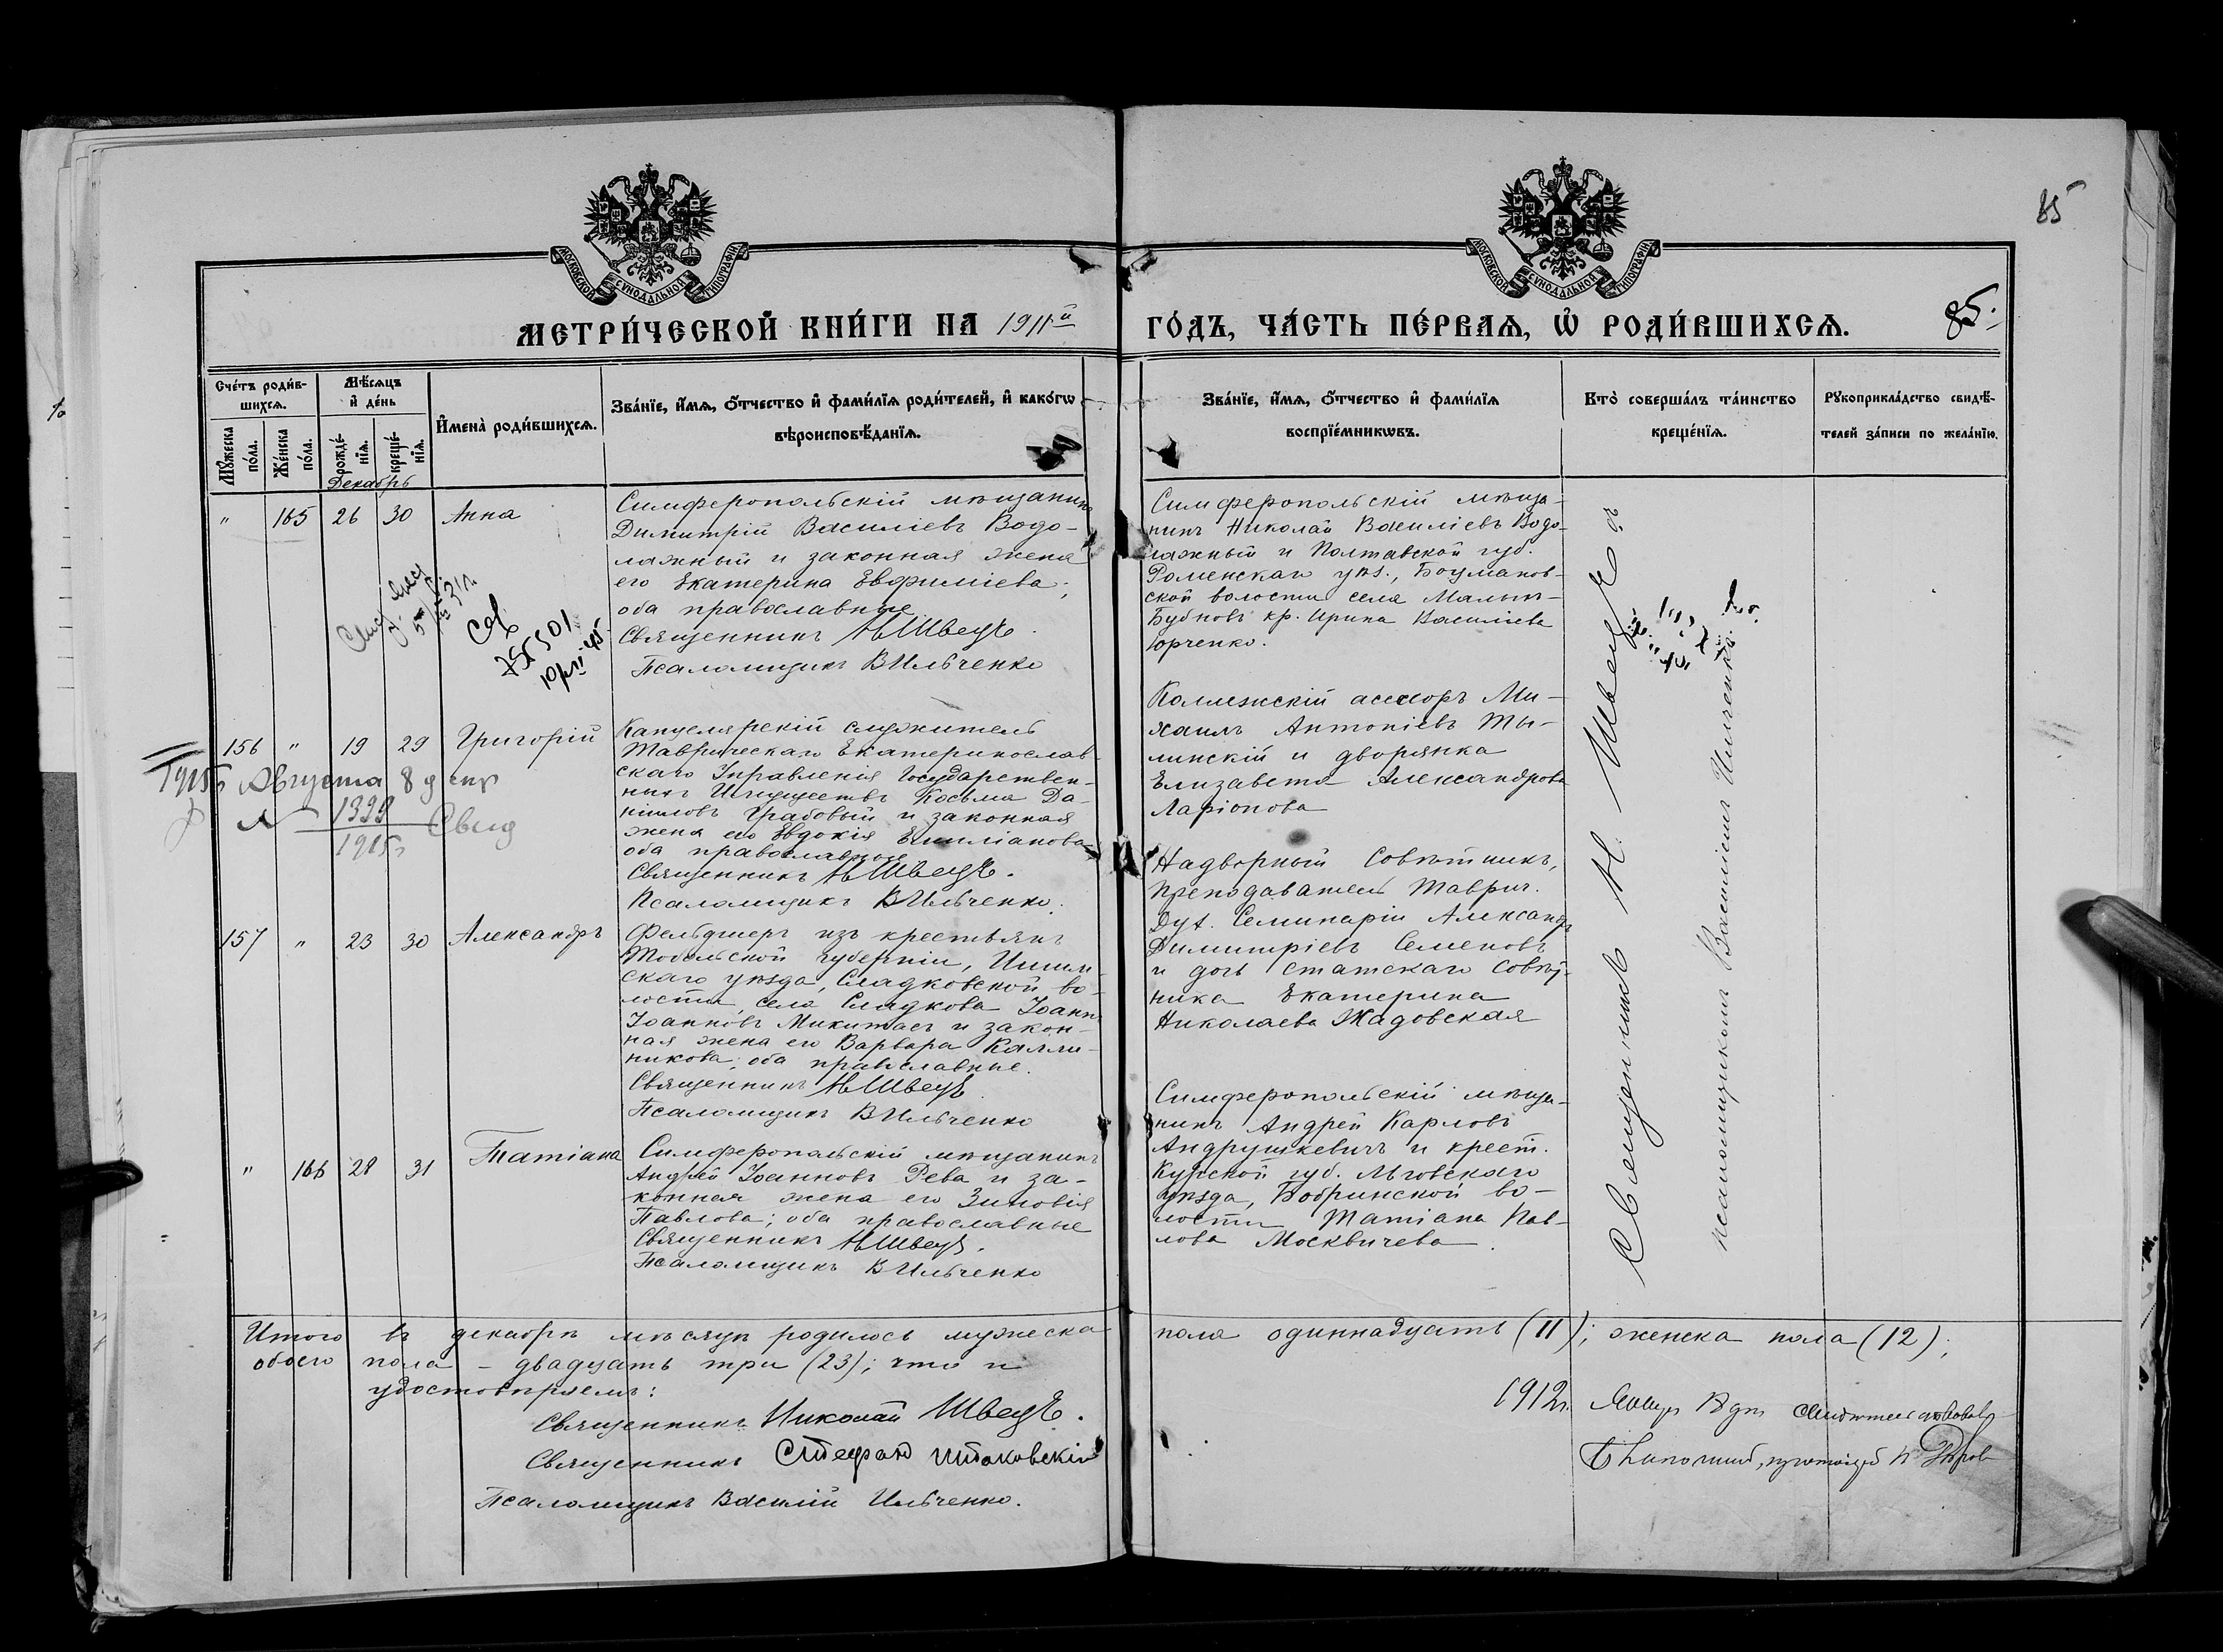 85
МОСКОВСКОЙ СѴНОДАЛЬНОЙ ТИПОГРАФІИ
МОСКОВСКОЙ СѴНОДАЛЬНОЙ ТИПОГРАФІИ
МЕТРИ́ЧЕСКОЙ КНИ́ГИ НА 1911й ГО́ДЪ, ЧА́СТЬ ПЕ́РВАѦ, Ѡ҆ РОДИ́ВШИХСѦ.
85.
Сче́тъ роди́в-
шихсѧ.
Мꙋ́жеска по́ла.
Же́нска по́ла.
Мѣ́сѧцъ
и҆ де́нь
рожде́-
нїѧ.
креще́-
нїѧ.
Декабрь
И҆мена̀ роди́вшихсѧ.
Зва́нїе, и҆́мѧ, ѻ҆́тчество и҆ фами́лїѧ роди́телей, и҆ како́гѡ
вѣроисповѣ́данїѧ.
Зва́нїе, и҆́мѧ, ѻ҆́тчество и҆ фами́лїѧ
воспрїе́мникѡвъ.
Кто̀ соверша́лъ та́инство
креще́нїѧ.
Рꙋкоприкла́дство свидѣ́-
телей за́писи по жела́нїю.
" 165 26 30 Анна
Симферопольскій мѣщанинъ
Димитрій Василіевъ Водо-
лажный и законная жена
его Екатерина Евфиміева;
оба православные
Священникъ Н Швецъ.
Псаломщикъ В Ильченко
Симферопольскій мѣща-
нинъ Николай Василіевъ Водо-
лажный и Полтавской губ.
Роменскаго уѣз.,
ской волости села Малыхъ-
Бубновъ кр. Ирина Василіева
Юрченко.
156 " 19 29 Григорій
Канцелярскій служитель
Таврическаго Екатеринослав-
скаго Управленія Государствен-
ныхъ Имуществъ Косьма Да-
ніиловъ Грабовый и законная
жена его Евдокія Емиліанова
оба православные
Священникъ Н Швецъ.
Псаломщикъ В Ильченко.
Коллежскій асессоръ Ми-
хаилъ Антоніевъ Ты-
линскій и дворянка
Елизавета Александрова
Ларіонова
1915г Августа 8 дня
№ 1399
1915г
Свид
157 " 23 30 Александръ
Фельдшеръ изъ крестьянъ
Тобольской губерніи, Ишим-
скаго уѣзда, Сладковской во-
лости, села Сладкова Іоаннъ
Іоанновъ Микитаевъ и закон-
ная жена его Варвара Калли-
никова; оба православные.
Священникъ Н Швецъ
Псаломщикъ В Ильченко
Надворный Совѣтникъ,
преподаватель Таврич.
Дух. Семинаріи Александръ
Димитріевъ Семеновъ
и дочь статскаго совѣт-
ника Екатерина
Николаева Жадовская
" 166 28 31 Татіана
Симферопольскій мѣщанинъ
Андрей Іоанновъ Рева и за-
конная жена его Зиновія
Павлова; оба православные
Священникъ Н Швецъ.
Псаломщикъ В Ильченко
Симферопольскій мѣща-
нинъ Андрей Карловъ
Андрушкевичъ и крест.
Курской губ. Льговскаго
уѣзда, Бобринской во-
лости Татіана Пав-
лова Москвичева.
Священникъ Н. Швецъ съ
псаломщикомъ Василіемъ Ильченко
Итого въ декабрѣ мѣсяцѣ родилось мужеска пола одиннадцать (11); женска пола (12);
обоего пола - двадцать три (23); что и
удостовѣряемъ:
Священникъ Николай Швецъ.
Священникъ Стефанъ
Псаломщикъ Василій Ильченко.
1912г.